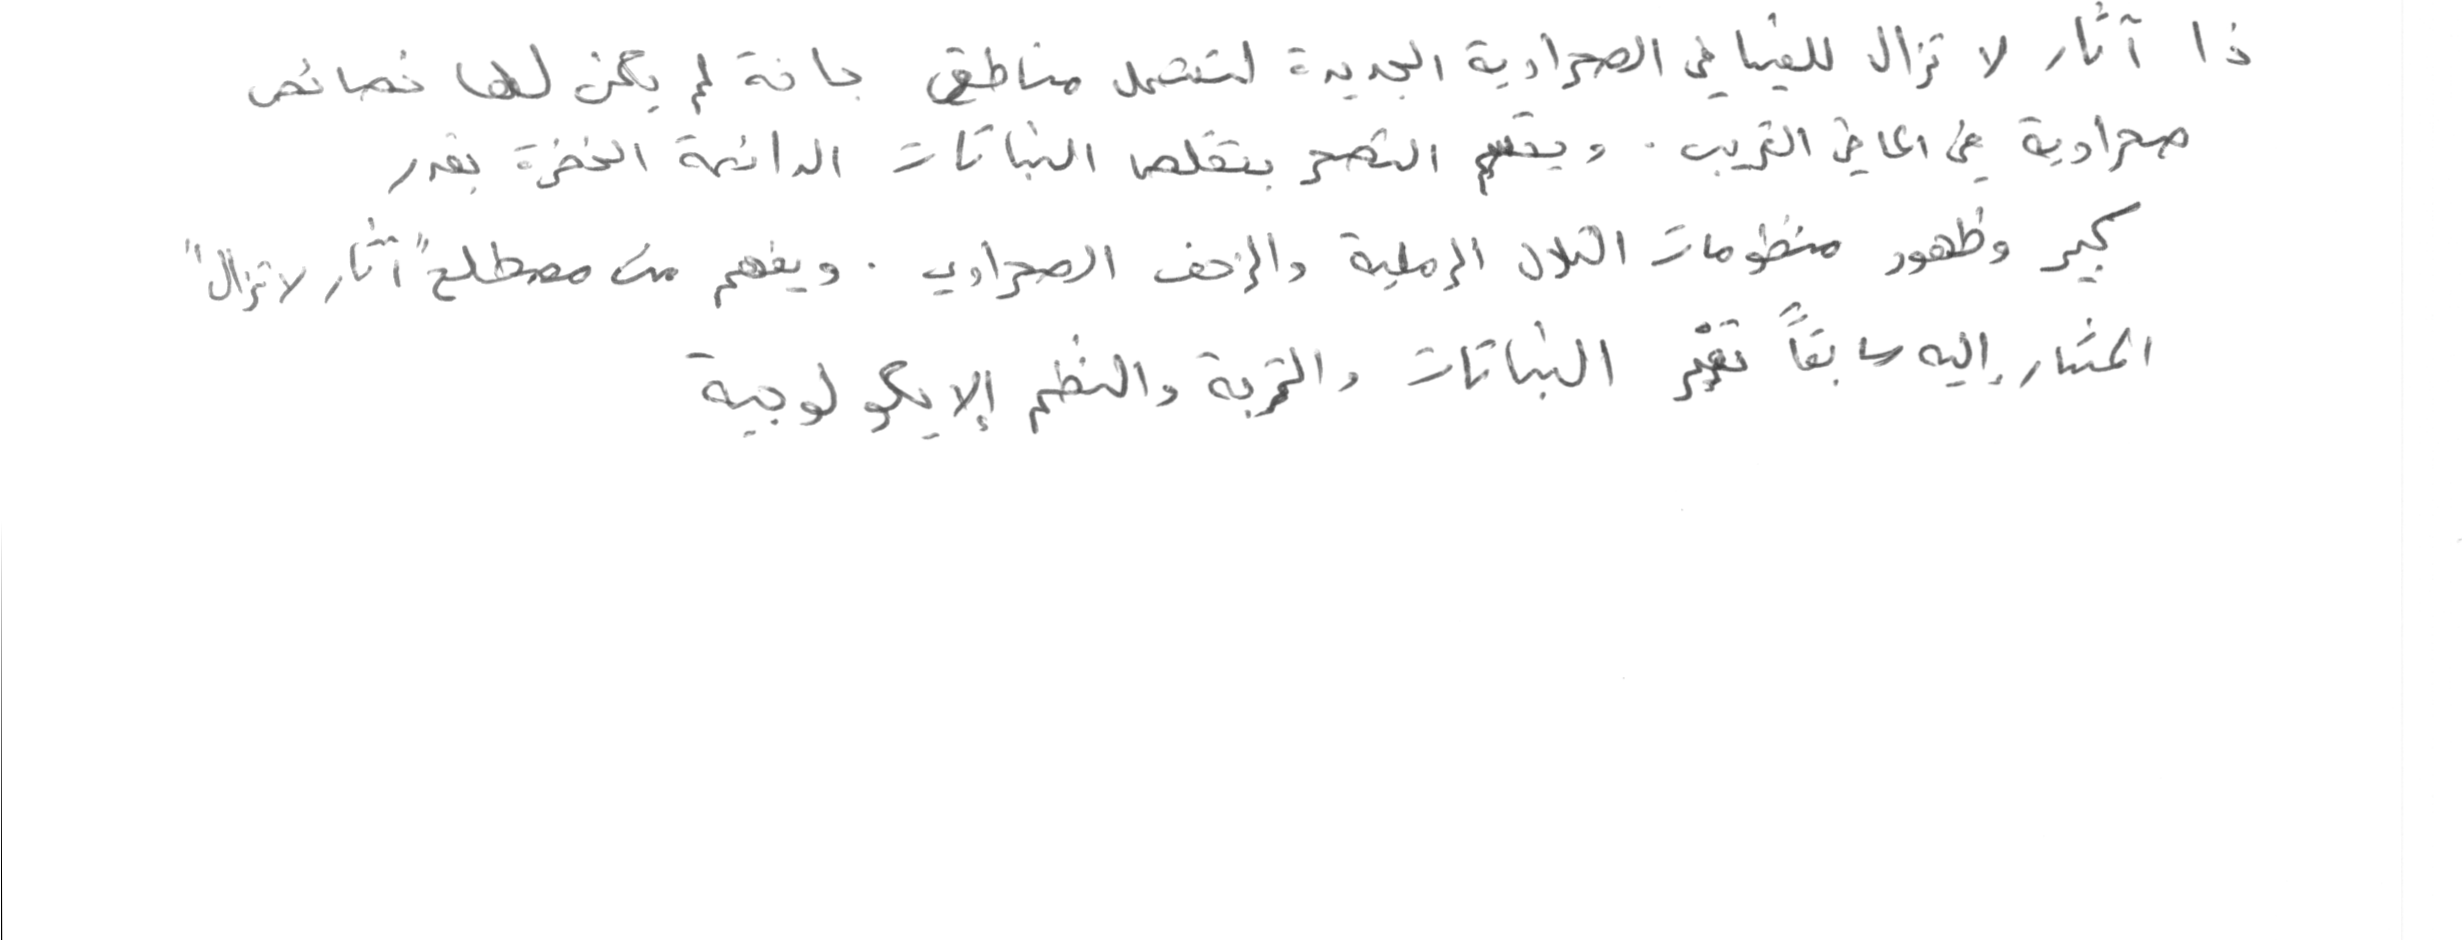 ذا آثار لا تزال للفيافي الصحراوية الجديدة لتشمل مناطق جافة لم يكن لها خصائص
صحراوية في الماضي القريب. ويتسم التصحر بتقلص النباتات الدائمة الخضرة بقدر
كبير وظهور منظومات التلال الرملية والزحف الصحراوي. ويفهم من مصطلح "آثار لا تزال"
المشار إليه سابقاً تغير النباتات والتربة والنظم الإيكولوجية